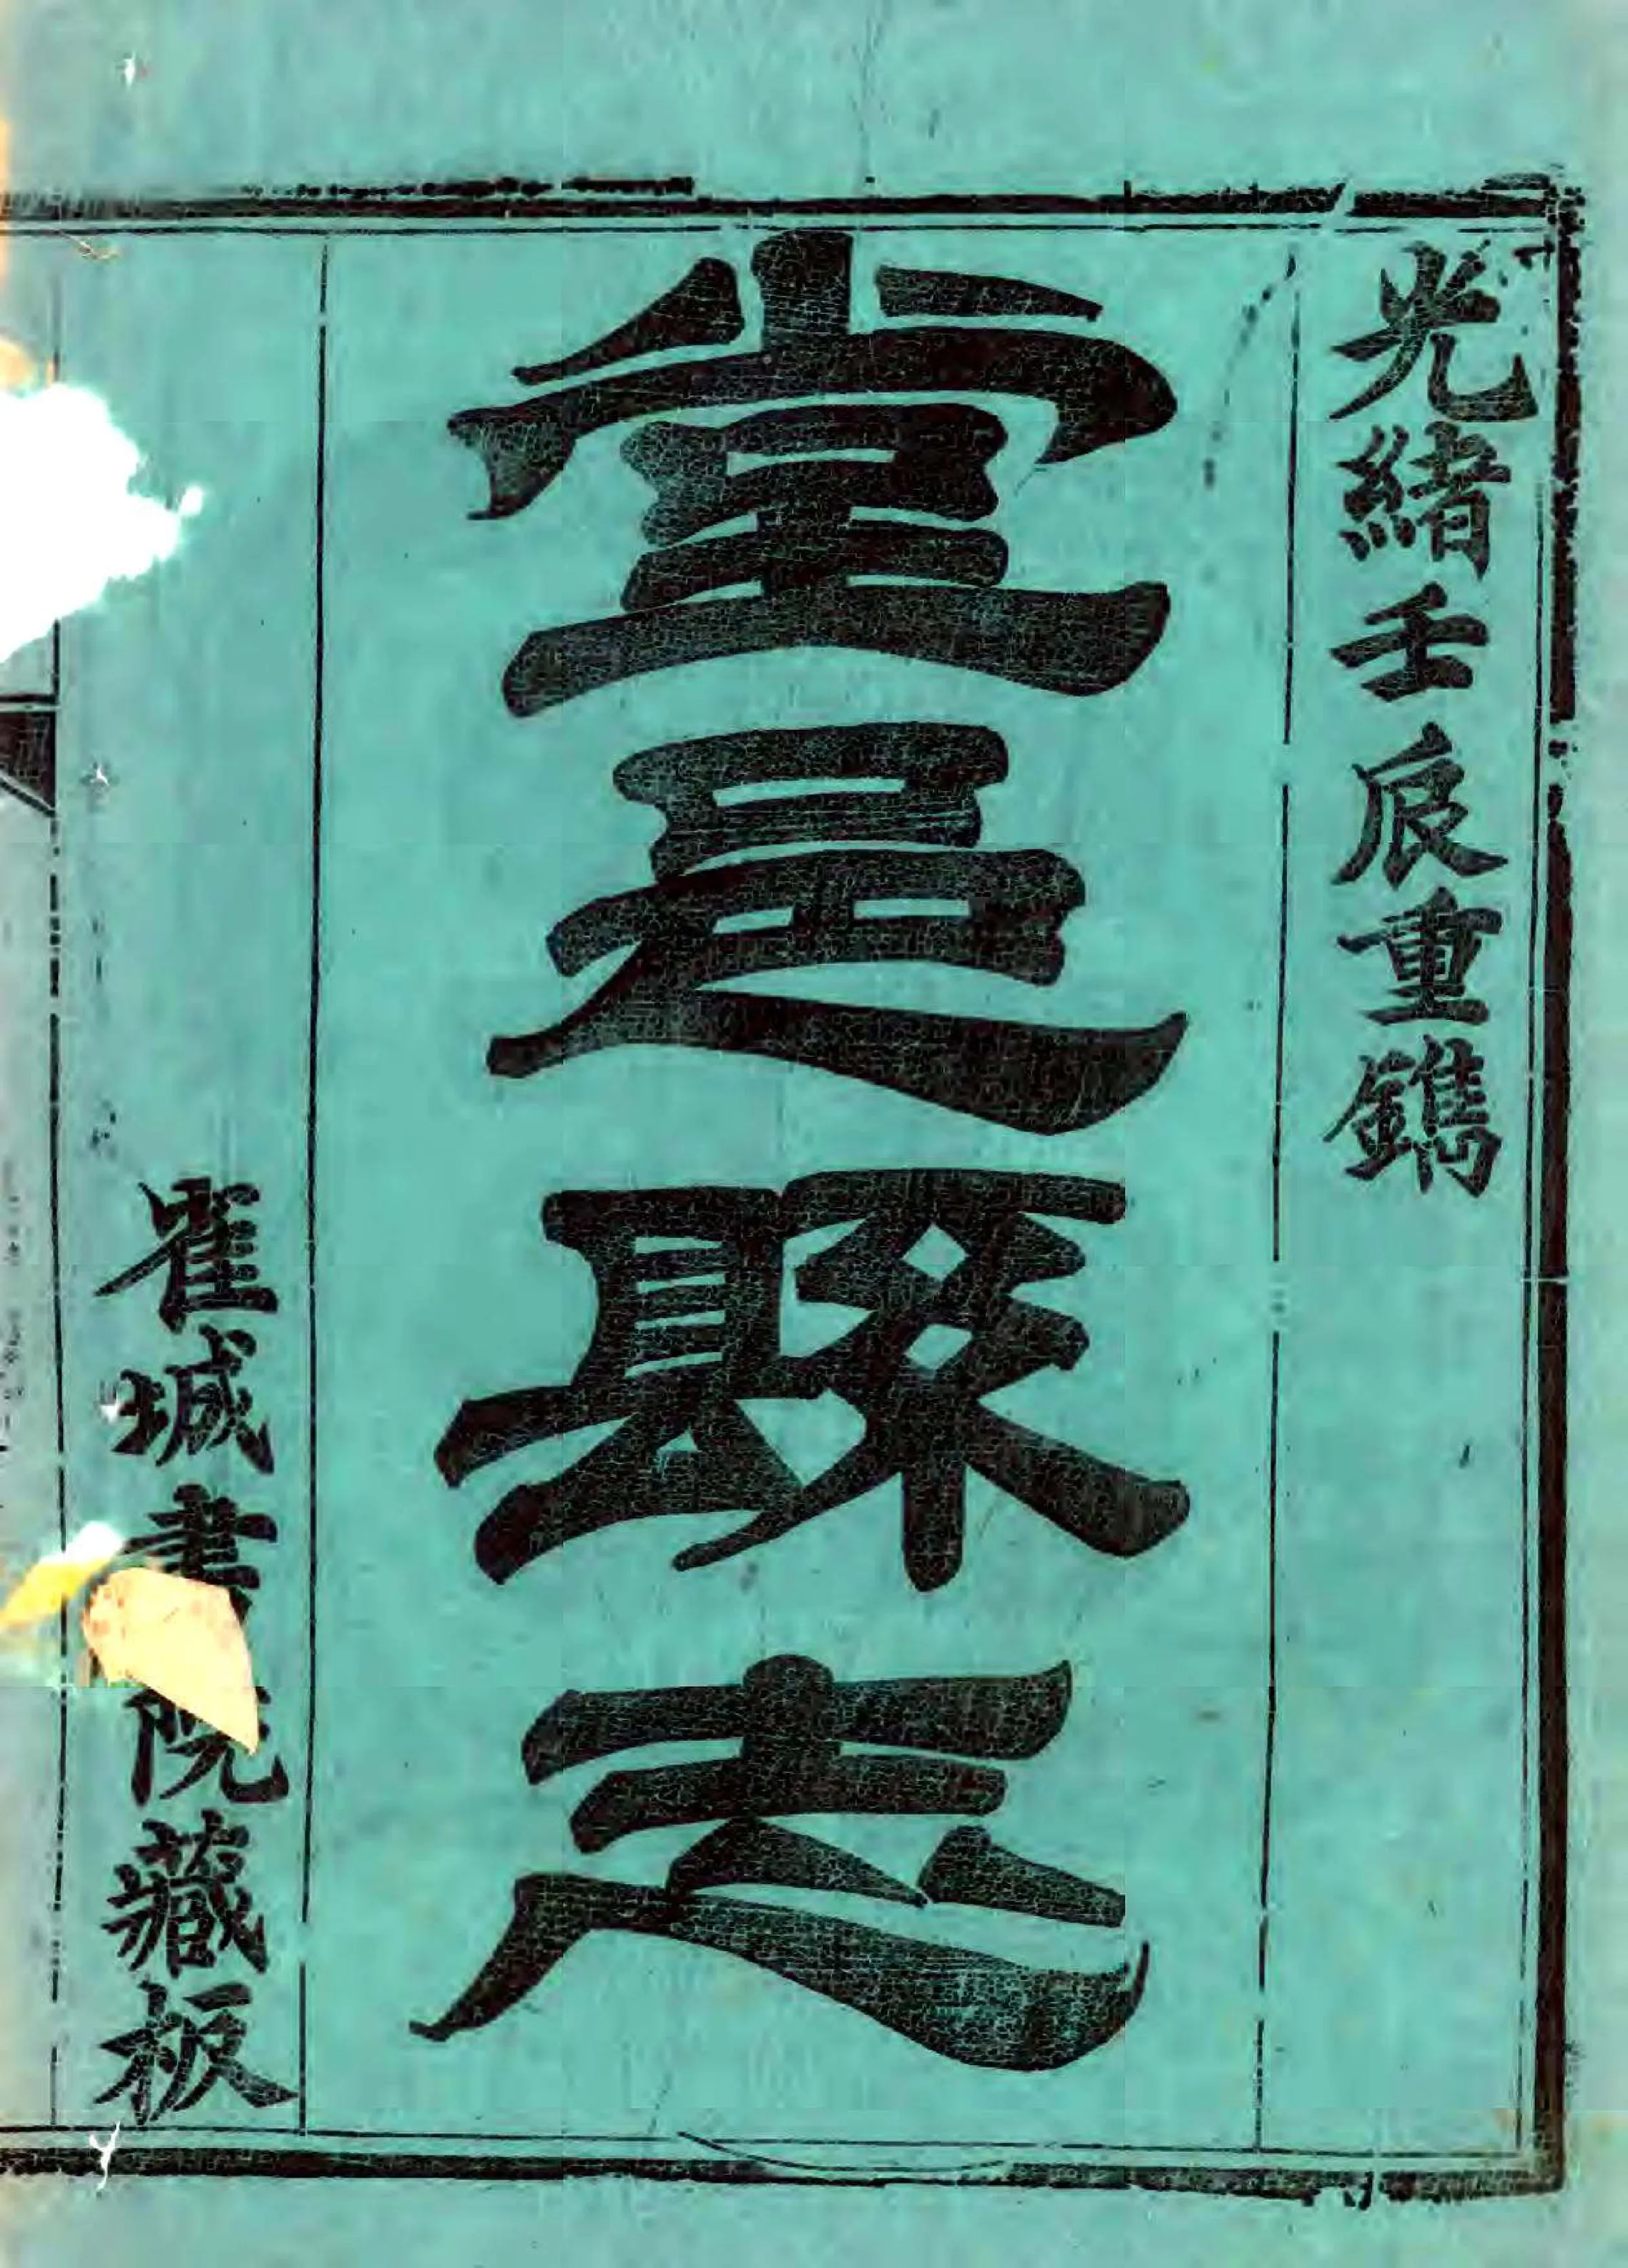 光緒壬辰重鐫
堂邑縣志
雀城書院藏板